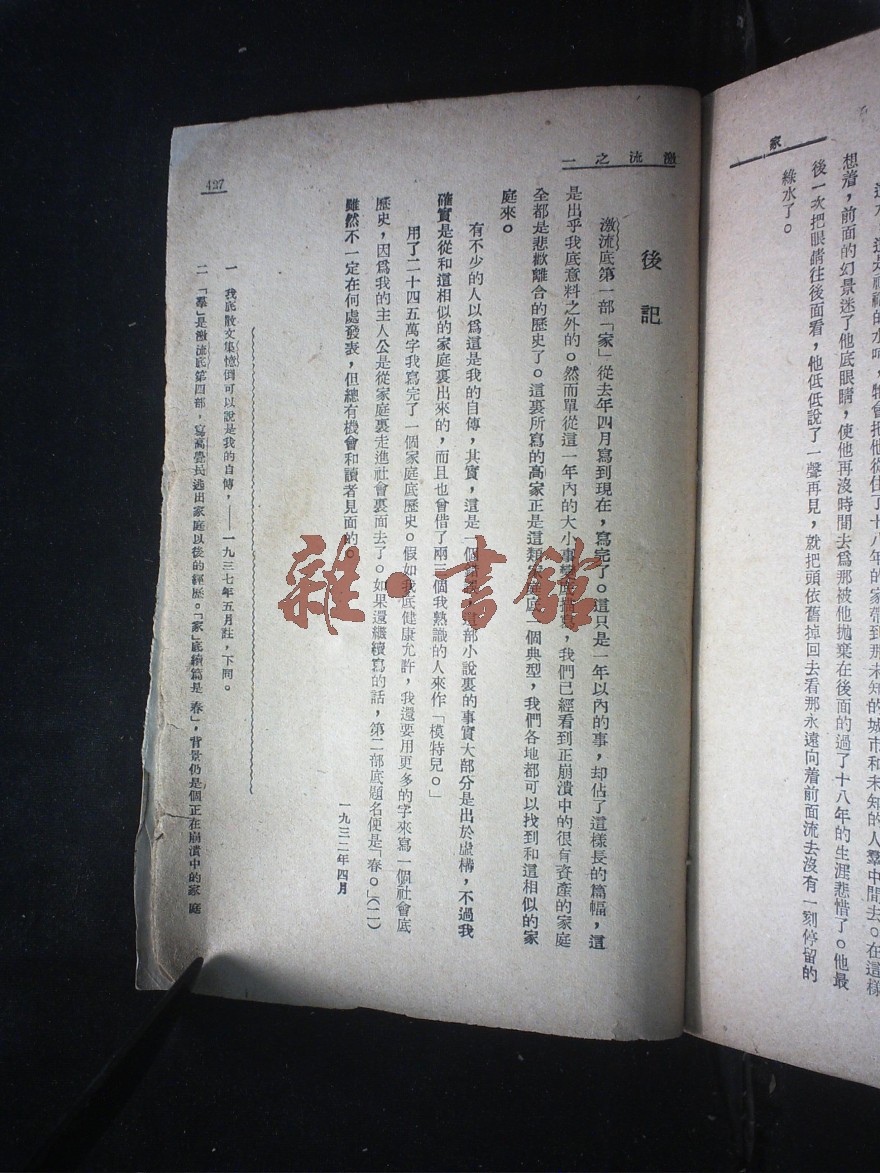 家
想着，前面的幻景迷了他底眼睛，使他再沒時間去爲那被他拋棄在後面的過了十八年的生涯悲惜了。他最
後一次把眼睛往後面看，他低低說了一聲再見，就把頭依舊掉回去看那永遠向着前面流去沒有一刻停留的
綠水了。
激流之一
後記
激流底第一部「家」從去年四月寫到現在，寫完了。這只是一年以內的事，却佔了這樣長的篇幅，這
是出乎我底意料之外的。然而單從這一年內的大小事變底，我們已經看到正崩潰中的很有資產的家庭
全都是悲歡離合的歷史了。這裏所寫的高家正是這類家庭底一個典型，我們各地都可以找到和這相似的家
庭來。
有不少的人以爲這是我的自傳，其實，這是一個部小說裏的事實大部分是出於虛構，不過我
確實是從和這相似的家庭裏出來的，而且也曾借了兩三個我熟識的人來作「模特兒。」
用了二十四五萬字我寫完了一個家庭底歷史。假如我底健康允許，我還要用更多的字來寫一個社會底
歷史，因爲我的主人公是從家庭裏走進社會裏面去了。如果還繼續寫的話，第二部底題名便是「春。」（二）
雖然不一定在何處發表，但總有機會和讀者見面的。
一九三二年四月
一　我底散文集憶倒可以說是我的自傳，——一九三七年五月註，下同。
二　「羣」是激流底第四部，寫高覺民逃出家庭以後的經歷。「家」底續篇是「春」，背景仍是個正在崩潰中的家庭
427
雜·書館